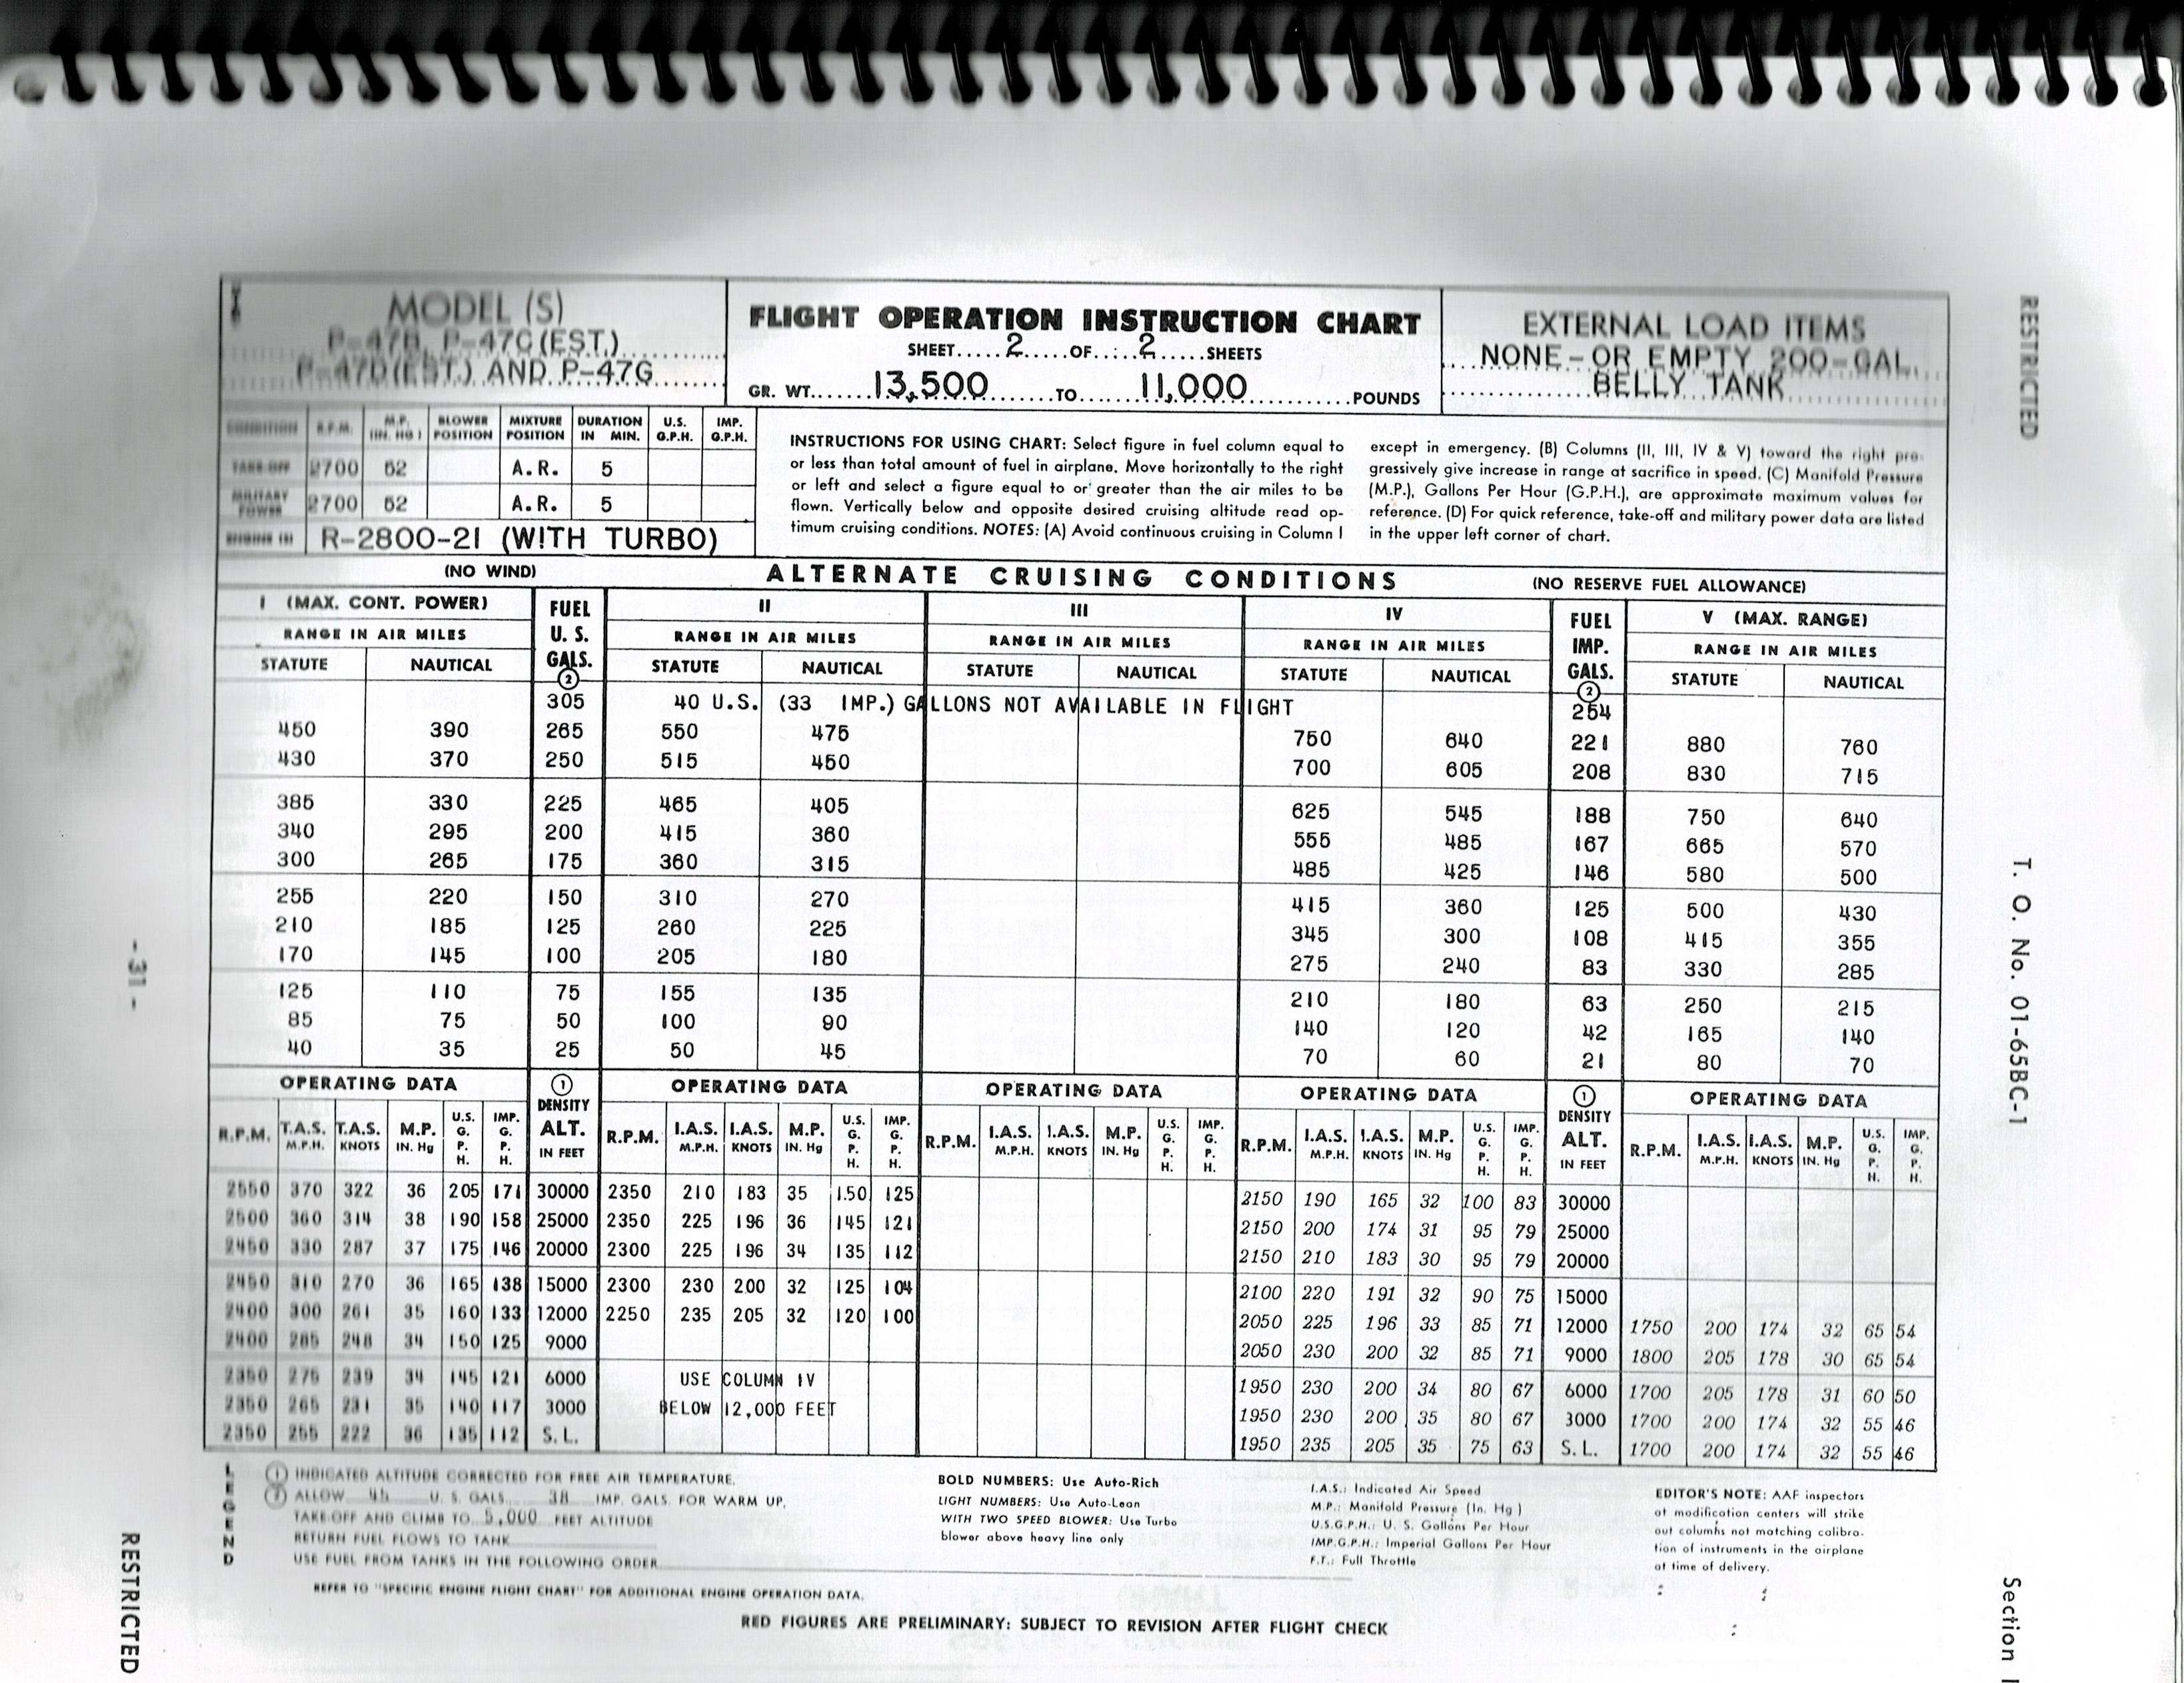 RESTRICTED
T. O. No. 01-65BC-1
Section I
- 31 -
RESTRICTED
MODEL (S)
P-47B, P-47C (EST.)
P-47D (EST.) AND P-47G
FLIGHT OPERATION INSTRUCTION CHART
SHEET.....2.....OF.....2.....SHEETS
GR. WT.......13,500.........TO.......11,000............POUNDS
EXTERNAL LOAD ITEMS
NONE-OR EMPTY 200-GAL.
BELLY TANK
CONDITION R.P.M. M.P. (IN. HG) BLOWER POSITION MIXTURE POSITION DURATION IN MIN. U.S. G.P.H. IMP. G.P.H.
TAKE-OFF 2700 52 A.R. 5
MILITARY POWER 2700 52 A.R. 5
ENGINE (S) R-2800-21 (WITH TURBO)
INSTRUCTIONS FOR USING CHART: Select figure in fuel column equal to
or less than total amount of fuel in airplane. Move horizontally to the right
or left and select a figure equal to or greater than the air miles to be
flown. Vertically below and opposite desired cruising altitude read op-
timum cruising conditions. NOTES: (A) Avoid continuous cruising in Column I
except in emergency. (B) Columns (II, III, IV & V) toward the right pro-
gressively give increase in range at sacrifice in speed. (C) Manifold Pressure
(M.P.), Gallons Per Hour (G.P.H.), are approximate maximum values for
reference. (D) For quick reference, take-off and military power data are listed
in the upper left corner of chart.
(NO WIND) ALTERNATE CRUISING CONDITIONS (NO RESERVE FUEL ALLOWANCE)
I (MAX. CONT. POWER) FUEL U. S. GALS. ② II III IV FUEL IMP. GALS. ② V (MAX. RANGE)
RANGE IN AIR MILES RANGE IN AIR MILES RANGE IN AIR MILES RANGE IN AIR MILES RANGE IN AIR MILES
STATUTE NAUTICAL STATUTE NAUTICAL STATUTE NAUTICAL STATUTE NAUTICAL STATUTE NAUTICAL
305 40 U.S. (33 IMP.) GALLONS NOT AVAILABLE IN FLIGHT 254
450 390 265 550 475 750 640 221 880 760
430 370 250 515 450 700 605 208 830 715
385 330 225 465 405 625 545 188 750 640
340 295 200 415 360 555 485 167 665 570
300 265 175 360 315 485 425 146 580 500
255 220 150 310 270 415 360 125 500 430
210 185 125 260 225 345 300 108 415 355
170 145 100 205 180 275 240 83 330 285
125 110 75 155 135 210 180 63 250 215
85 75 50 100 90 140 120 42 165 140
40 35 25 50 45 70 60 21 80 70
OPERATING DATA ① DENSITY ALT. IN FEET OPERATING DATA OPERATING DATA OPERATING DATA ① DENSITY ALT. IN FEET OPERATING DATA
R.P.M. T.A.S. M.P.H. T.A.S. KNOTS M.P. IN. Hg U.S. G. P. H. IMP. G. P. H. R.P.M. I.A.S. M.P.H. I.A.S. KNOTS M.P. IN. Hg U.S. G. P. H. IMP. G. P. H. R.P.M. I.A.S. M.P.H. I.A.S. KNOTS M.P. IN. Hg U.S. G. P. H. IMP. G. P. H. R.P.M. I.A.S. M.P.H. I.A.S. KNOTS M.P. IN. Hg U.S. G. P. H. IMP. G. P. H. R.P.M. I.A.S. M.P.H. I.A.S. KNOTS M.P. IN. Hg U.S. G. P. H. IMP. G. P. H.
2550 370 322 36 205 171 30000 2350 210 183 35 150 125 2150 190 165 32 100 83 30000
2500 360 314 38 190 158 25000 2350 225 196 36 145 121 2150 200 174 31 95 79 25000
2450 330 287 37 175 146 20000 2300 225 196 34 135 112 2150 210 183 30 95 79 20000
2450 310 270 36 165 138 15000 2300 230 200 32 125 104 2100 220 191 32 90 75 15000
2400 300 261 35 160 133 12000 2250 235 205 32 120 100 2050 225 196 33 85 71 12000 1750 200 174 32 65 54
2400 285 248 34 150 125 9000 2050 230 200 32 85 71 9000 1800 205 178 30 65 54
2350 275 239 34 145 121 6000 USE COLUMN IV 1950 230 200 34 80 67 6000 1700 205 178 31 60 50
2350 265 231 35 140 117 3000 BELOW 12,000 FEET 1950 230 200 35 80 67 3000 1700 200 174 32 55 46
2350 255 222 36 135 112 S. L. 1950 235 205 35 75 63 S. L. 1700 200 174 32 55 46
LEGEND
① INDICATED ALTITUDE CORRECTED FOR FREE AIR TEMPERATURE.
② ALLOW 45 U. S. GALS. 38 IMP. GALS. FOR WARM UP,
TAKE-OFF AND CLIMB TO 5,000 FEET ALTITUDE
RETURN FUEL FLOWS TO TANK
USE FUEL FROM TANKS IN THE FOLLOWING ORDER
REFER TO "SPECIFIC ENGINE FLIGHT CHART" FOR ADDITIONAL ENGINE OPERATION DATA.
BOLD NUMBERS: Use Auto-Rich
LIGHT NUMBERS: Use Auto-Lean
WITH TWO SPEED BLOWER: Use Turbo
blower above heavy line only
I.A.S.: Indicated Air Speed
M.P.: Manifold Pressure (In. Hg )
U.S.G.P.H.: U. S. Gallons Per Hour
IMP.G.P.H.: Imperial Gallons Per Hour
F.T.: Full Throttle
EDITOR'S NOTE: AAF inspectors
at modification centers will strike
out columns not matching calibra-
tion of instruments in the airplane
at time of delivery.
RED FIGURES ARE PRELIMINARY: SUBJECT TO REVISION AFTER FLIGHT CHECK